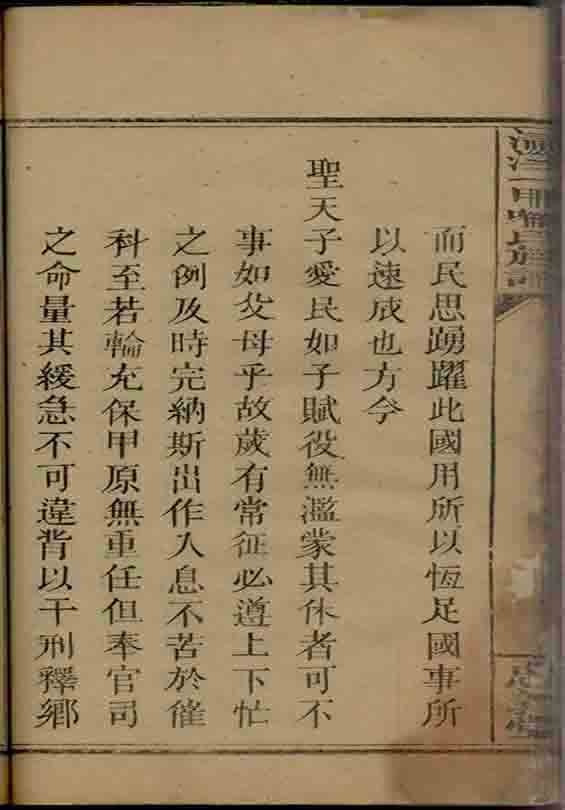 而民思踴躍此國用所以恆足國事所
以速成也方今
聖天子愛民如子賦役無濫蒙其休者可不
事如父母乎故歲有常征必遵上下忙
之例及時完納斯出作入息不苦於催
科至若輪充保甲原無重任但奉官司
之命量其緩急不可違背以干刑釋鄉